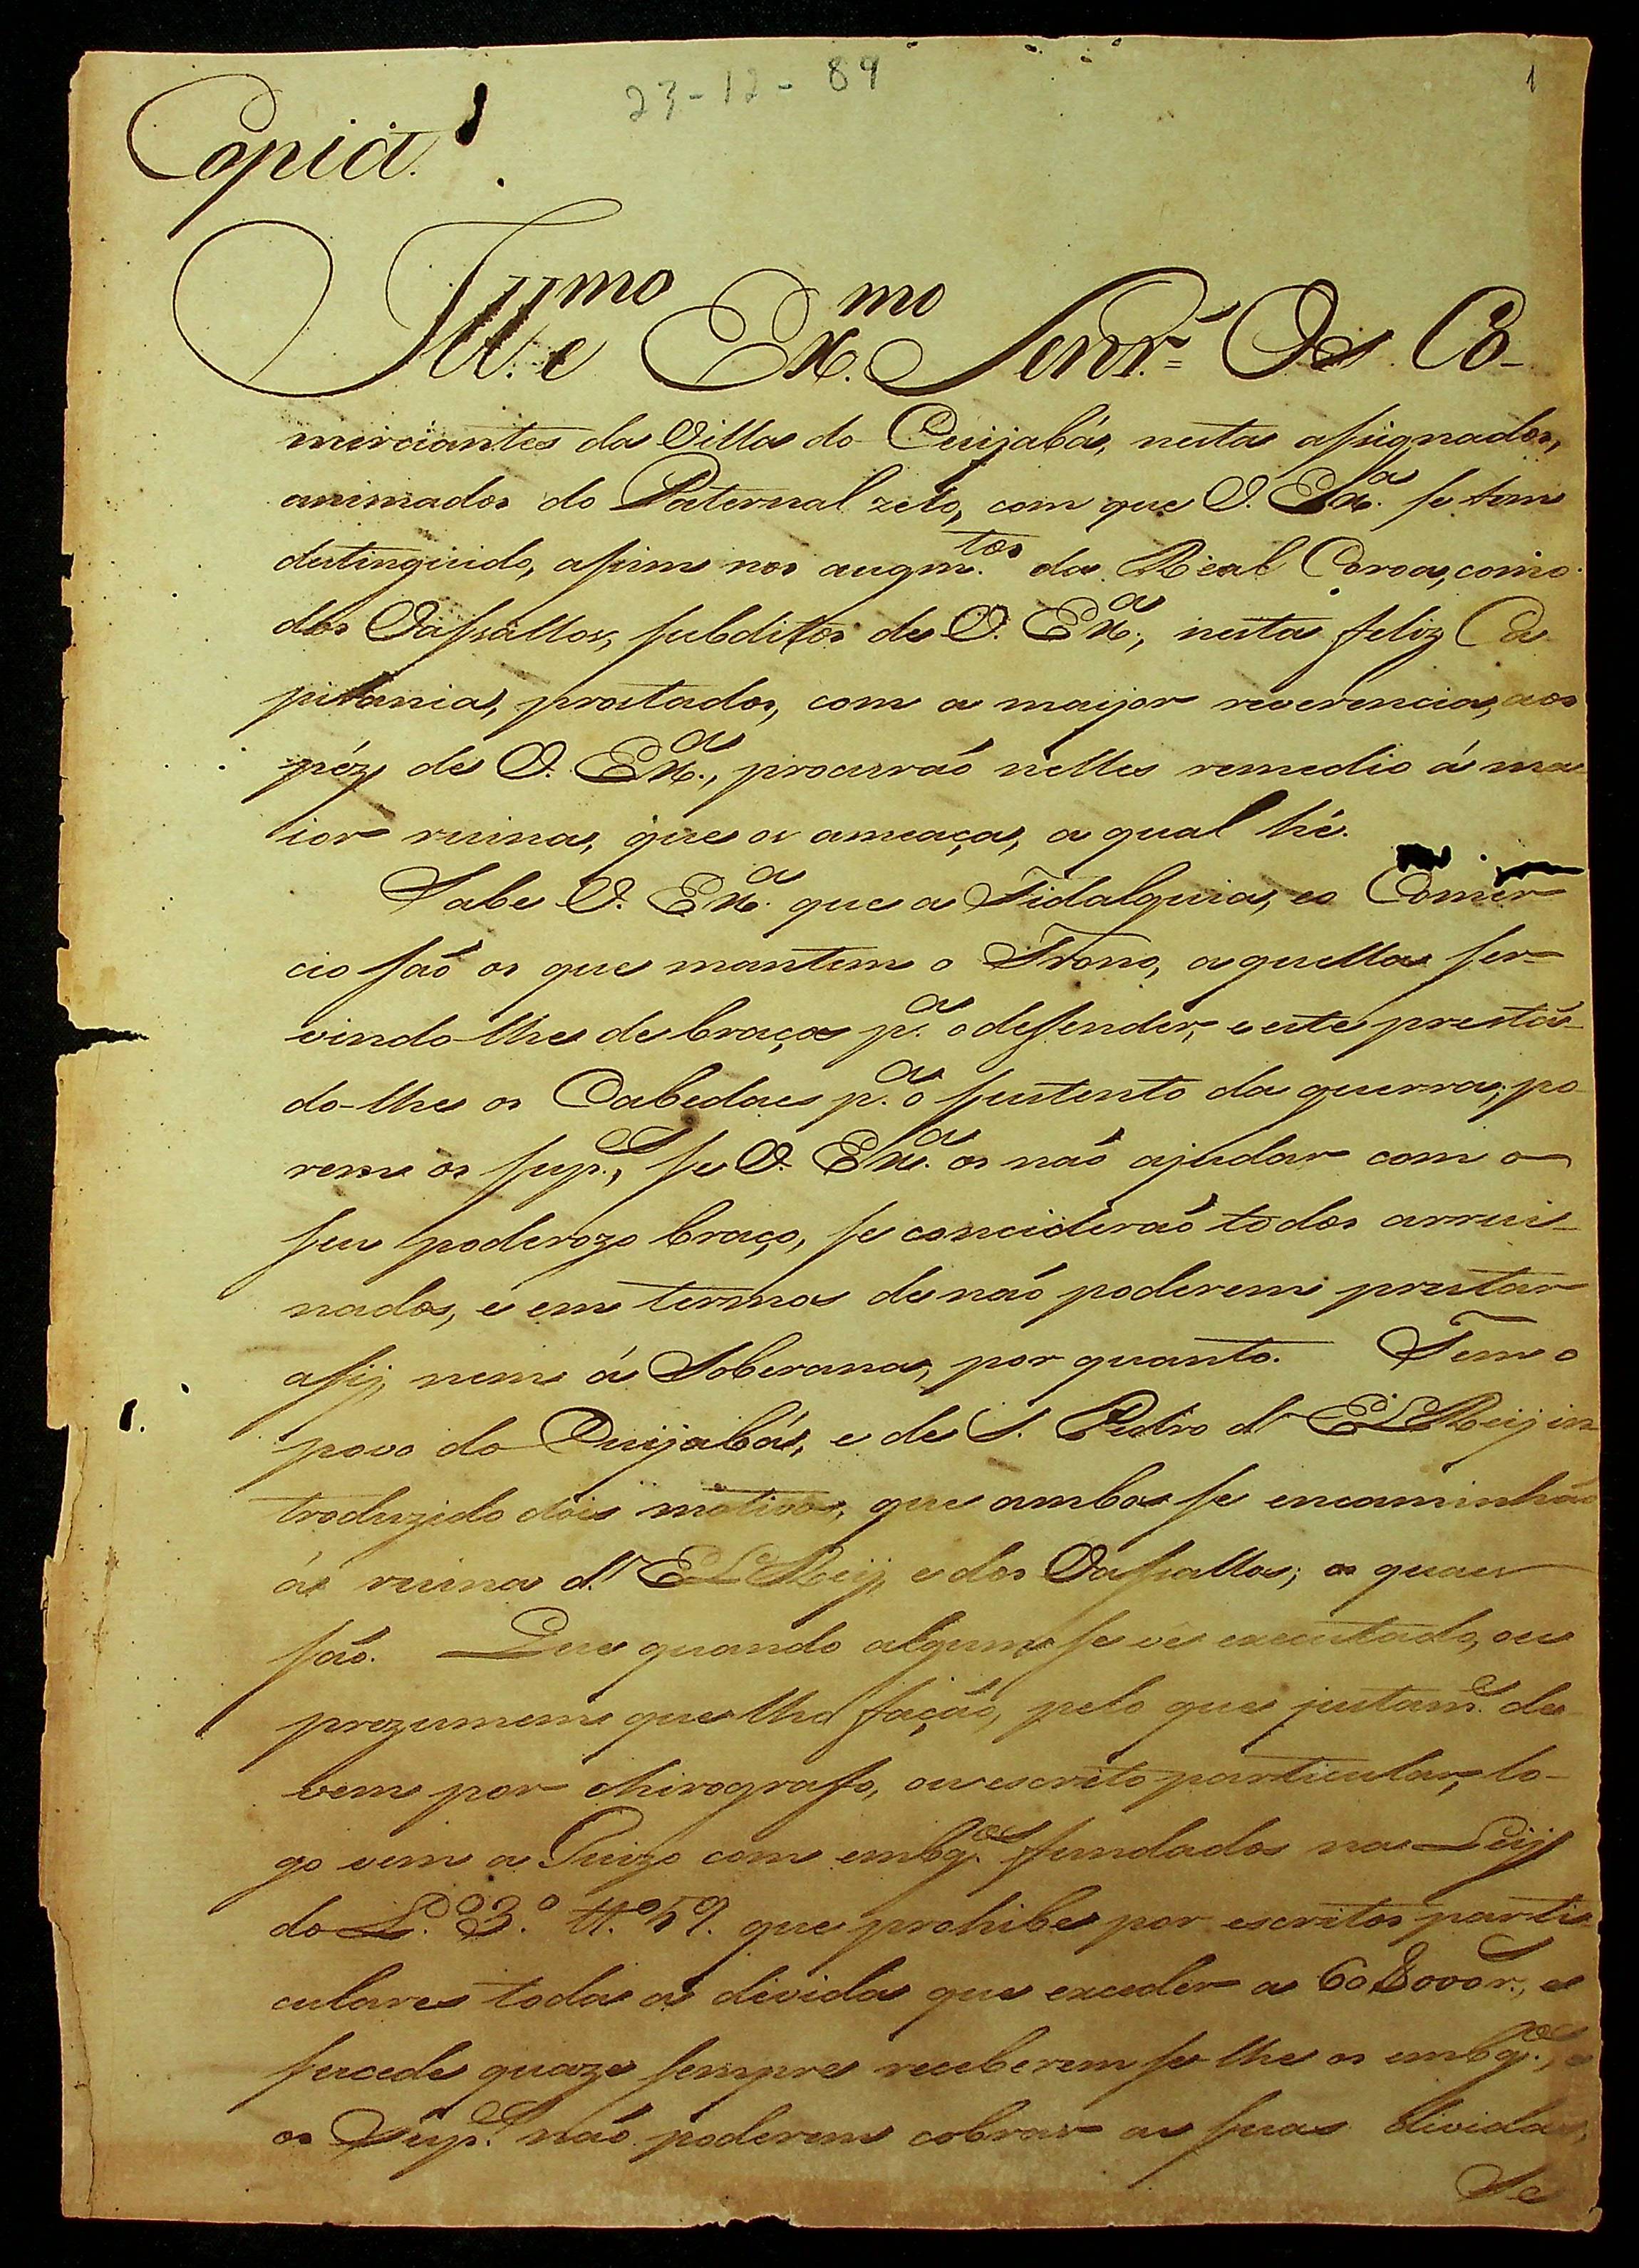 23-12-89
1
Copia.
Ill.mo e Ex.mo Senr.= Os Co-
merciantes da Villa do Cuijabá, nesta assignados,
animados do Paternal zelo, com que V. Ex.a se tem
destinguido, assim nos augm.tos da Real Coroa, como
dos Vassallos, subditos de V. Ex.a, nesta feliz Ca
pitania, prostados, com a maijor reverencia, aos
péz de V. Ex.a, procuraó nelles remedio á ma
ior ruina, que os ameaça, a qual hé.
Sabe V. Ex.a que a Fidalguia, e o Comer
cio saó os que mantem o Trono, aquella ser=
vindo-lhe de braços p.a o deffender, e este prestã
do-lhe os Cabedaes p.a o sustento da guerra; po
rem os sup.es, se V. Ex.a os naó ajudar com o
seu poderozo braço, se concideraó todos arrui-
nados, e em termos de naó poderem prestar
assy, nem á Soberana, por quanto. Tem o
1.
povo do Cuijabá, e de S. Pedro d' El Reij in
troduzido dois motivos, que ambos se encaminhão
ás ruina d' El Reij, e dos Vassallos; os quaes
saó. Que quando algum se vê executado, ou
prezumem que lha façaó, pelo que justam.e de
vem por chirografo, ou escrito particular, lo-
go vem a Juizo com embg.os fundados na Leij
do L.o 3.o tt.o 59. que prohibe por escritos parti
culares toda a divida que exceder a 60$000 r.s, e
sucede quaze sempre receberem se lhe os embg.os, e
os Sup.es naó poderem cobrar as suas dividas,
Se